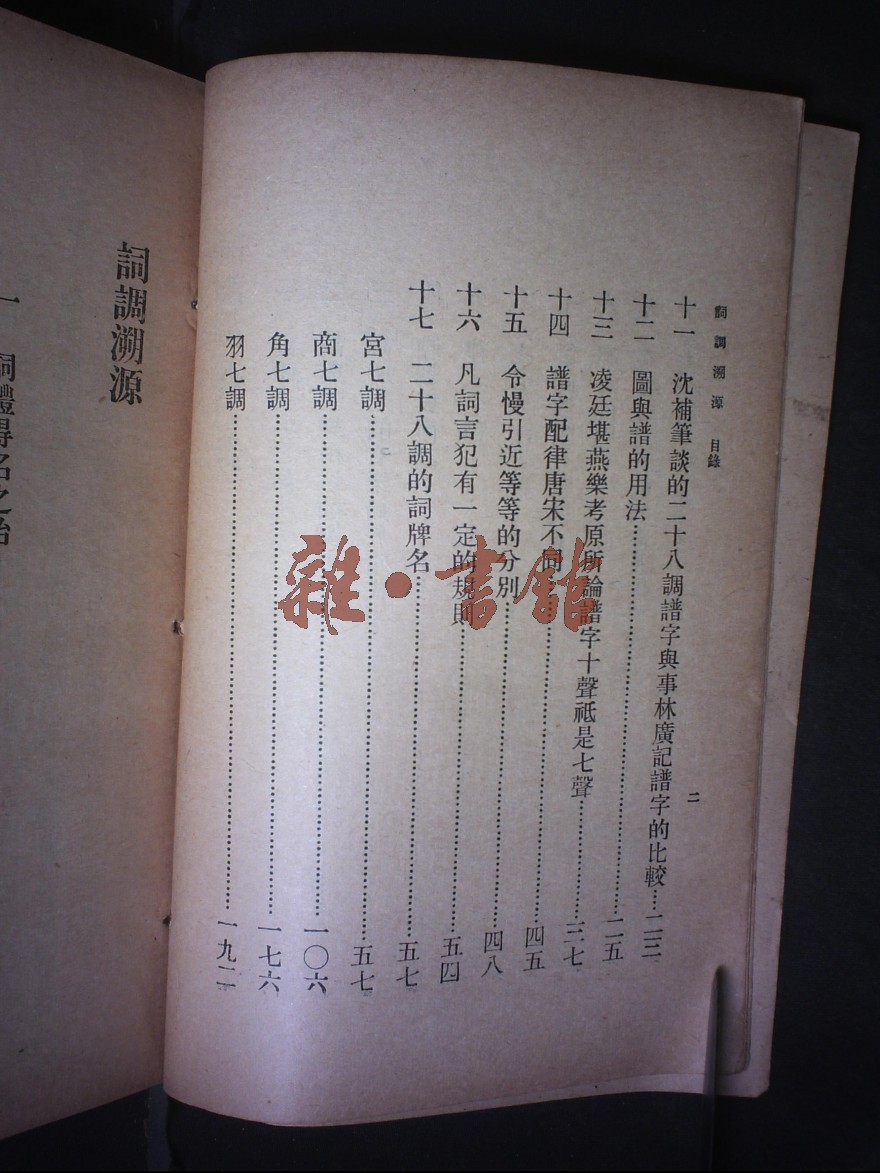 詞調溯源　目錄
二
十一　沈補筆談的二十八調譜字與事林廣記譜字的比較……二三
十二　圖與譜的用法……二五
十三　凌廷堪燕樂考原所論譜字十聲祇是七聲……三七
十四　譜字配律唐宋不同……四五
十五　令慢引近等等的分別……四八
十六　凡詞言犯有一定的規則……五四
十七　二十八調的詞牌名……五七
宮七調……五七
商七調……一〇六
角七調……一七六
羽七調……一九二
詞調溯源
一　詞體得名之始
雜·書館